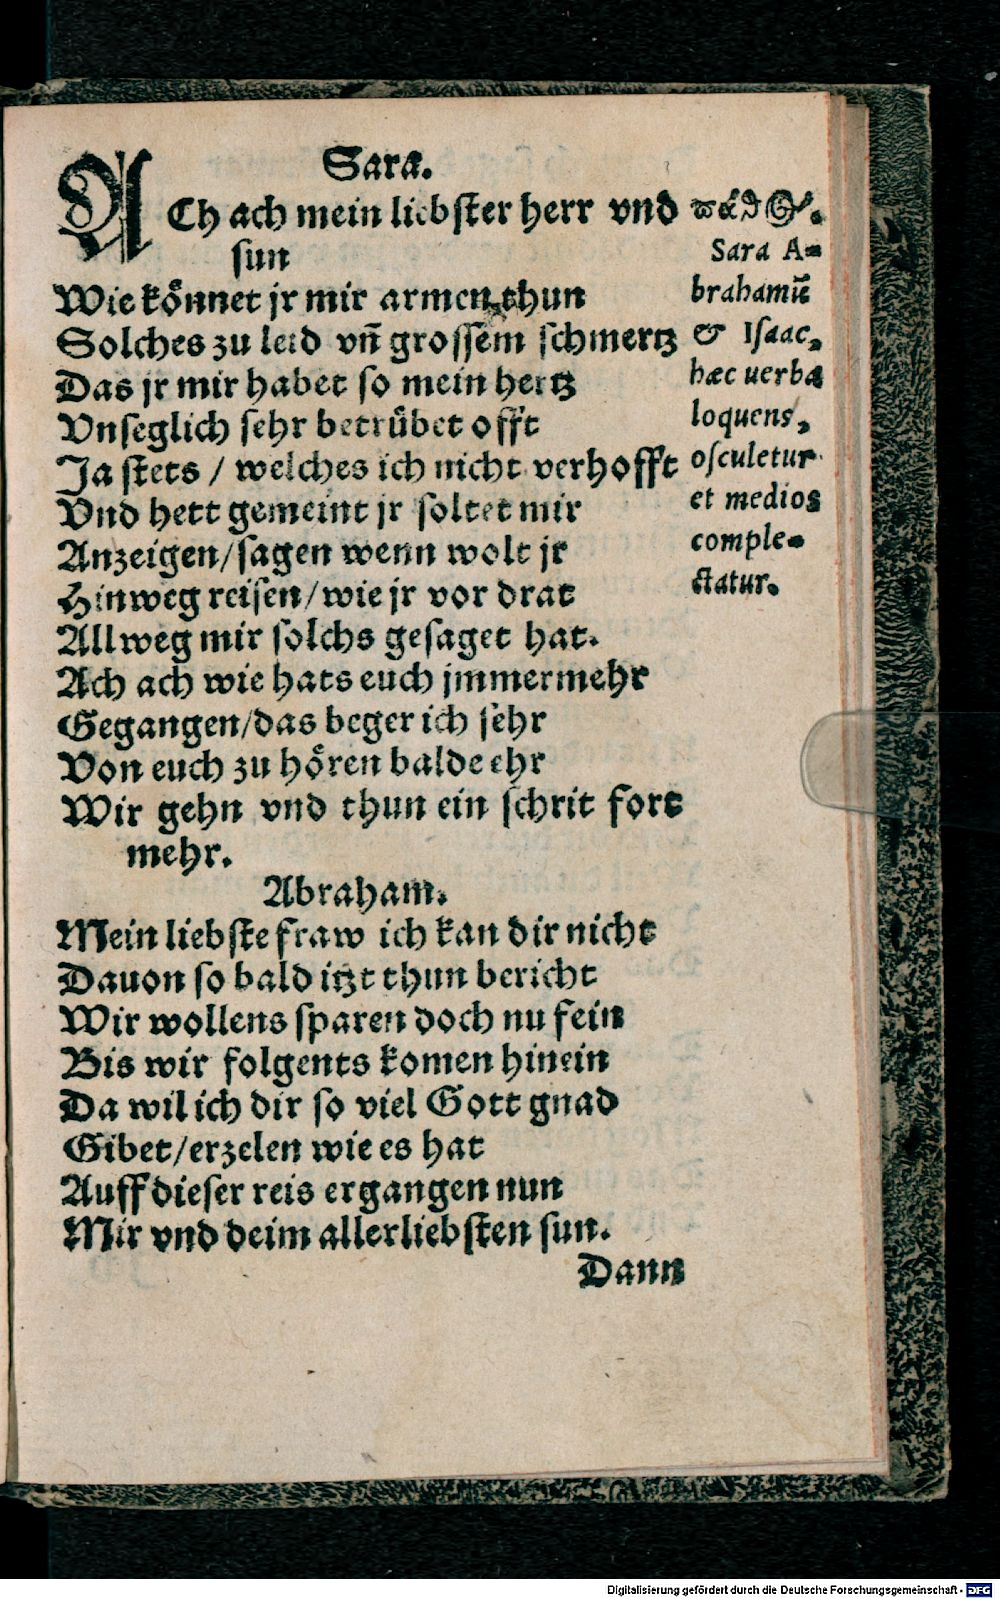 Sara.
ACh ach mein liebster herr vnd
sun
Wie könnet jr mir armen thun
Solches zu leid vñ grossem schmertz
Das jr mir habet so mein hertz
Vnseglich sehr betruͤbet offt
Ja stets / welches ich nicht verhofft
Vnd hett gemeint jr soltet mir
Anzeigen/sagen wenn wolt jr
Hinweg reisen/wie jr vor drat
Allweg mir solchs gesaget hat.
Ach ach wie hats euch jmmermehr
Gegangen/das beger ich sehr
Von euch zu hören balde ehr
Wir gehn vnd thun ein schrit fort
mehr.
Sara A-
brahamū
& Isaac,
hæc uerba
loquens,
osculetur
et medios
comple-
ctatur.
Abraham.
Mein liebste fraw ich kan dir nicht
Dauon so bald itzt thun bericht
Wir wollens sparen doch nu fein
Bis wir folgents komen hinein
Da wil ich dir so viel Gott gnad
Gibet/erzelen wie es hat
Auff dieser reis ergangen nun
Mir vnd deim allerliebsten sun.
Dann
Digitalisierung gefördert durch die Deutsche Forschungsgemeinschaft - DFG